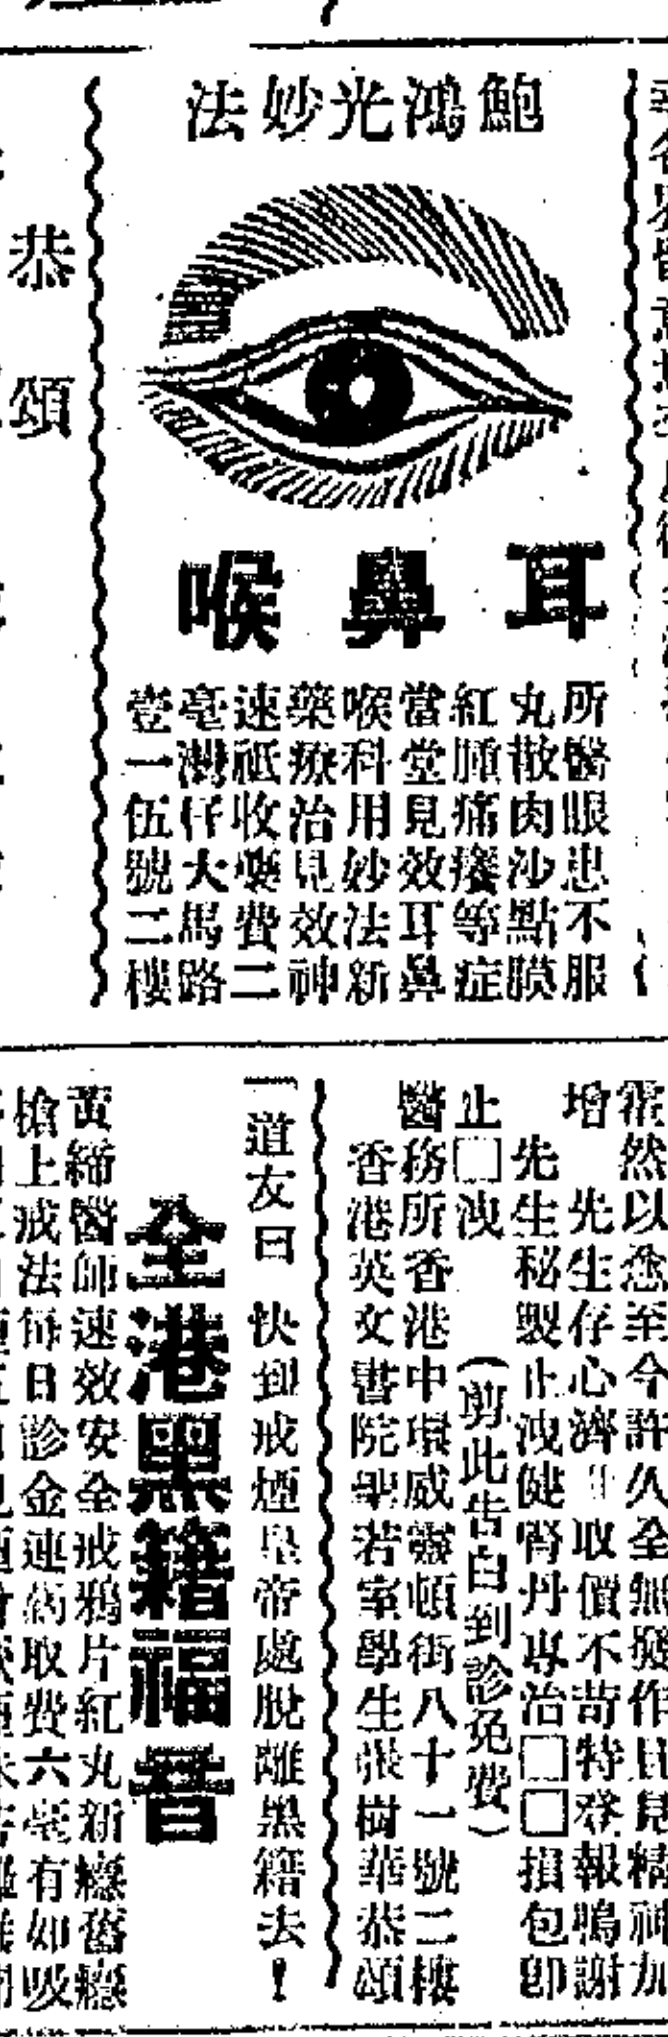 鮑鴻光妙法
耳鼻喉
所醫眼患不服
丸散肉沙點膜
紅腫痛癢等症
當堂見效耳鼻
喉科用妙法新
藥療治見效神
速祇收藥費二
毫灣仔大馬路
壹一伍號二樓
恭頌
霍然以愈至今許久全無發作且見精神加
增 先生存心濟 取價不苛特登報鳴謝
先生秘製止洩健腎丹專治□□損包即
止□洩 (剪此告白到診免費)
醫務所香港中環威靈頓街八十一號二樓
香港英文書院聖若室學生張樹華恭頌
「道友曰 快到戒煙皇帝處脫離黑籍去!
全港黑籍福音
黃締醫師速效安全戒鴉片紅丸新癮舊癮
槍上戒法每日診金連葯取費六毫有如吸